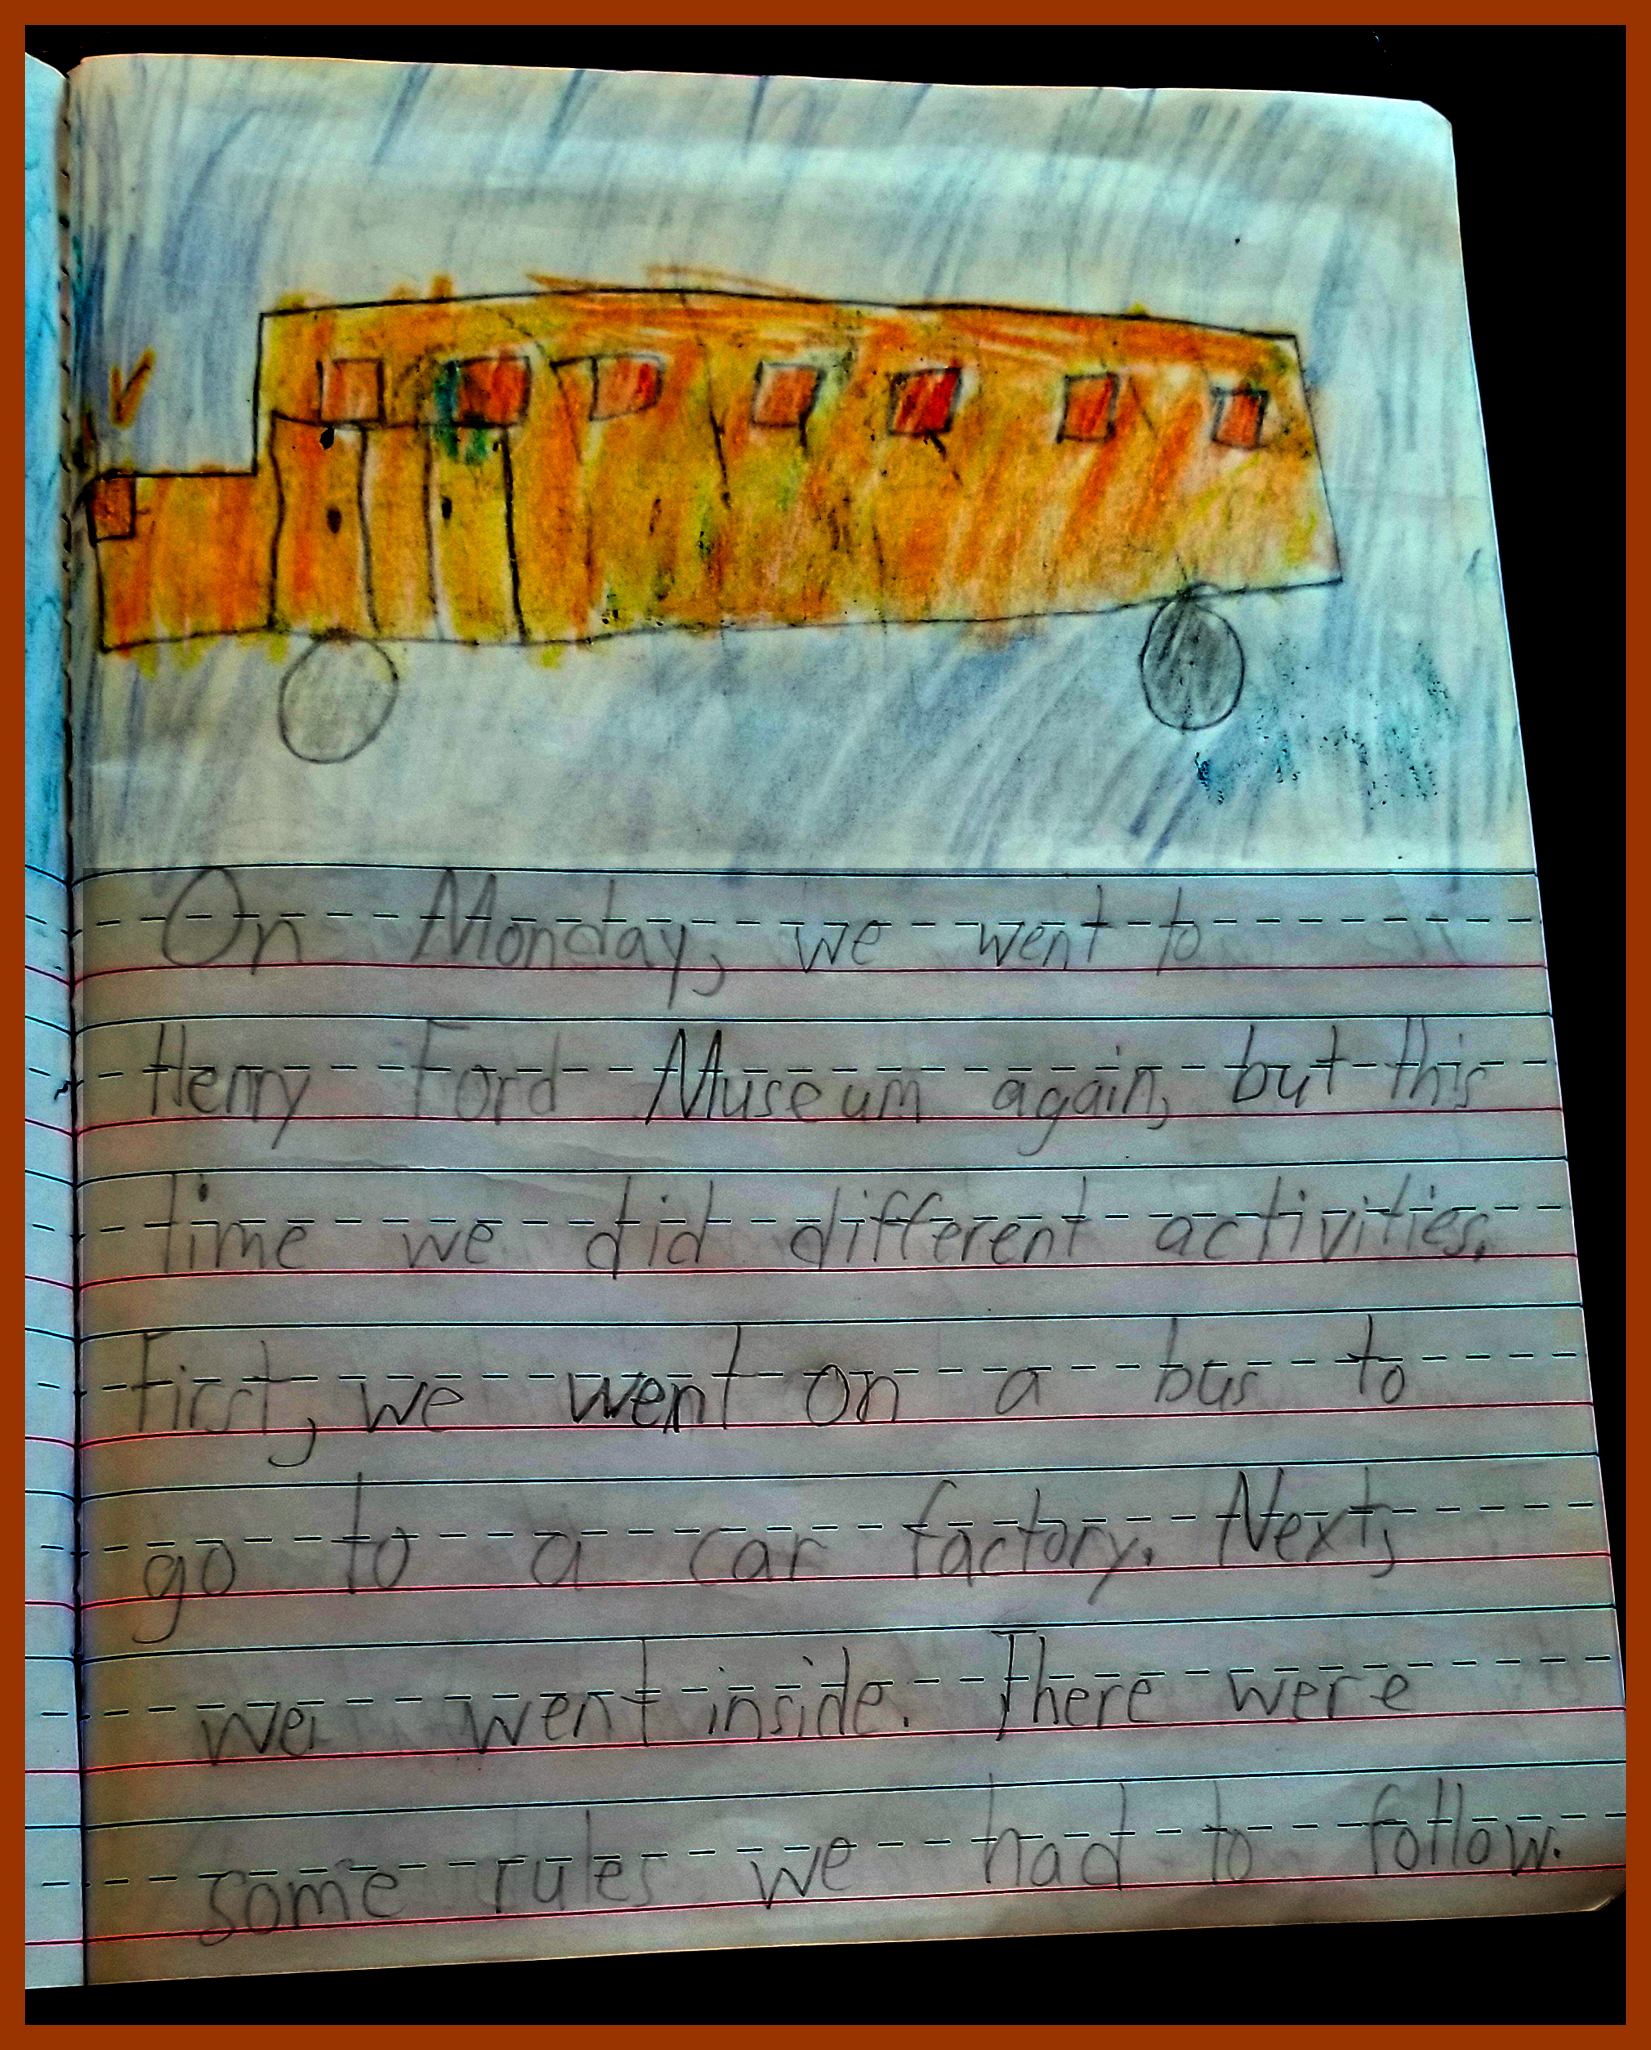 On Monday, we went to
Henry Ford Museum again, but this
time we did different activities.
First, we went on a bus to
go to a car factory. Next,
we went inside. There were
some rules we had to follow.